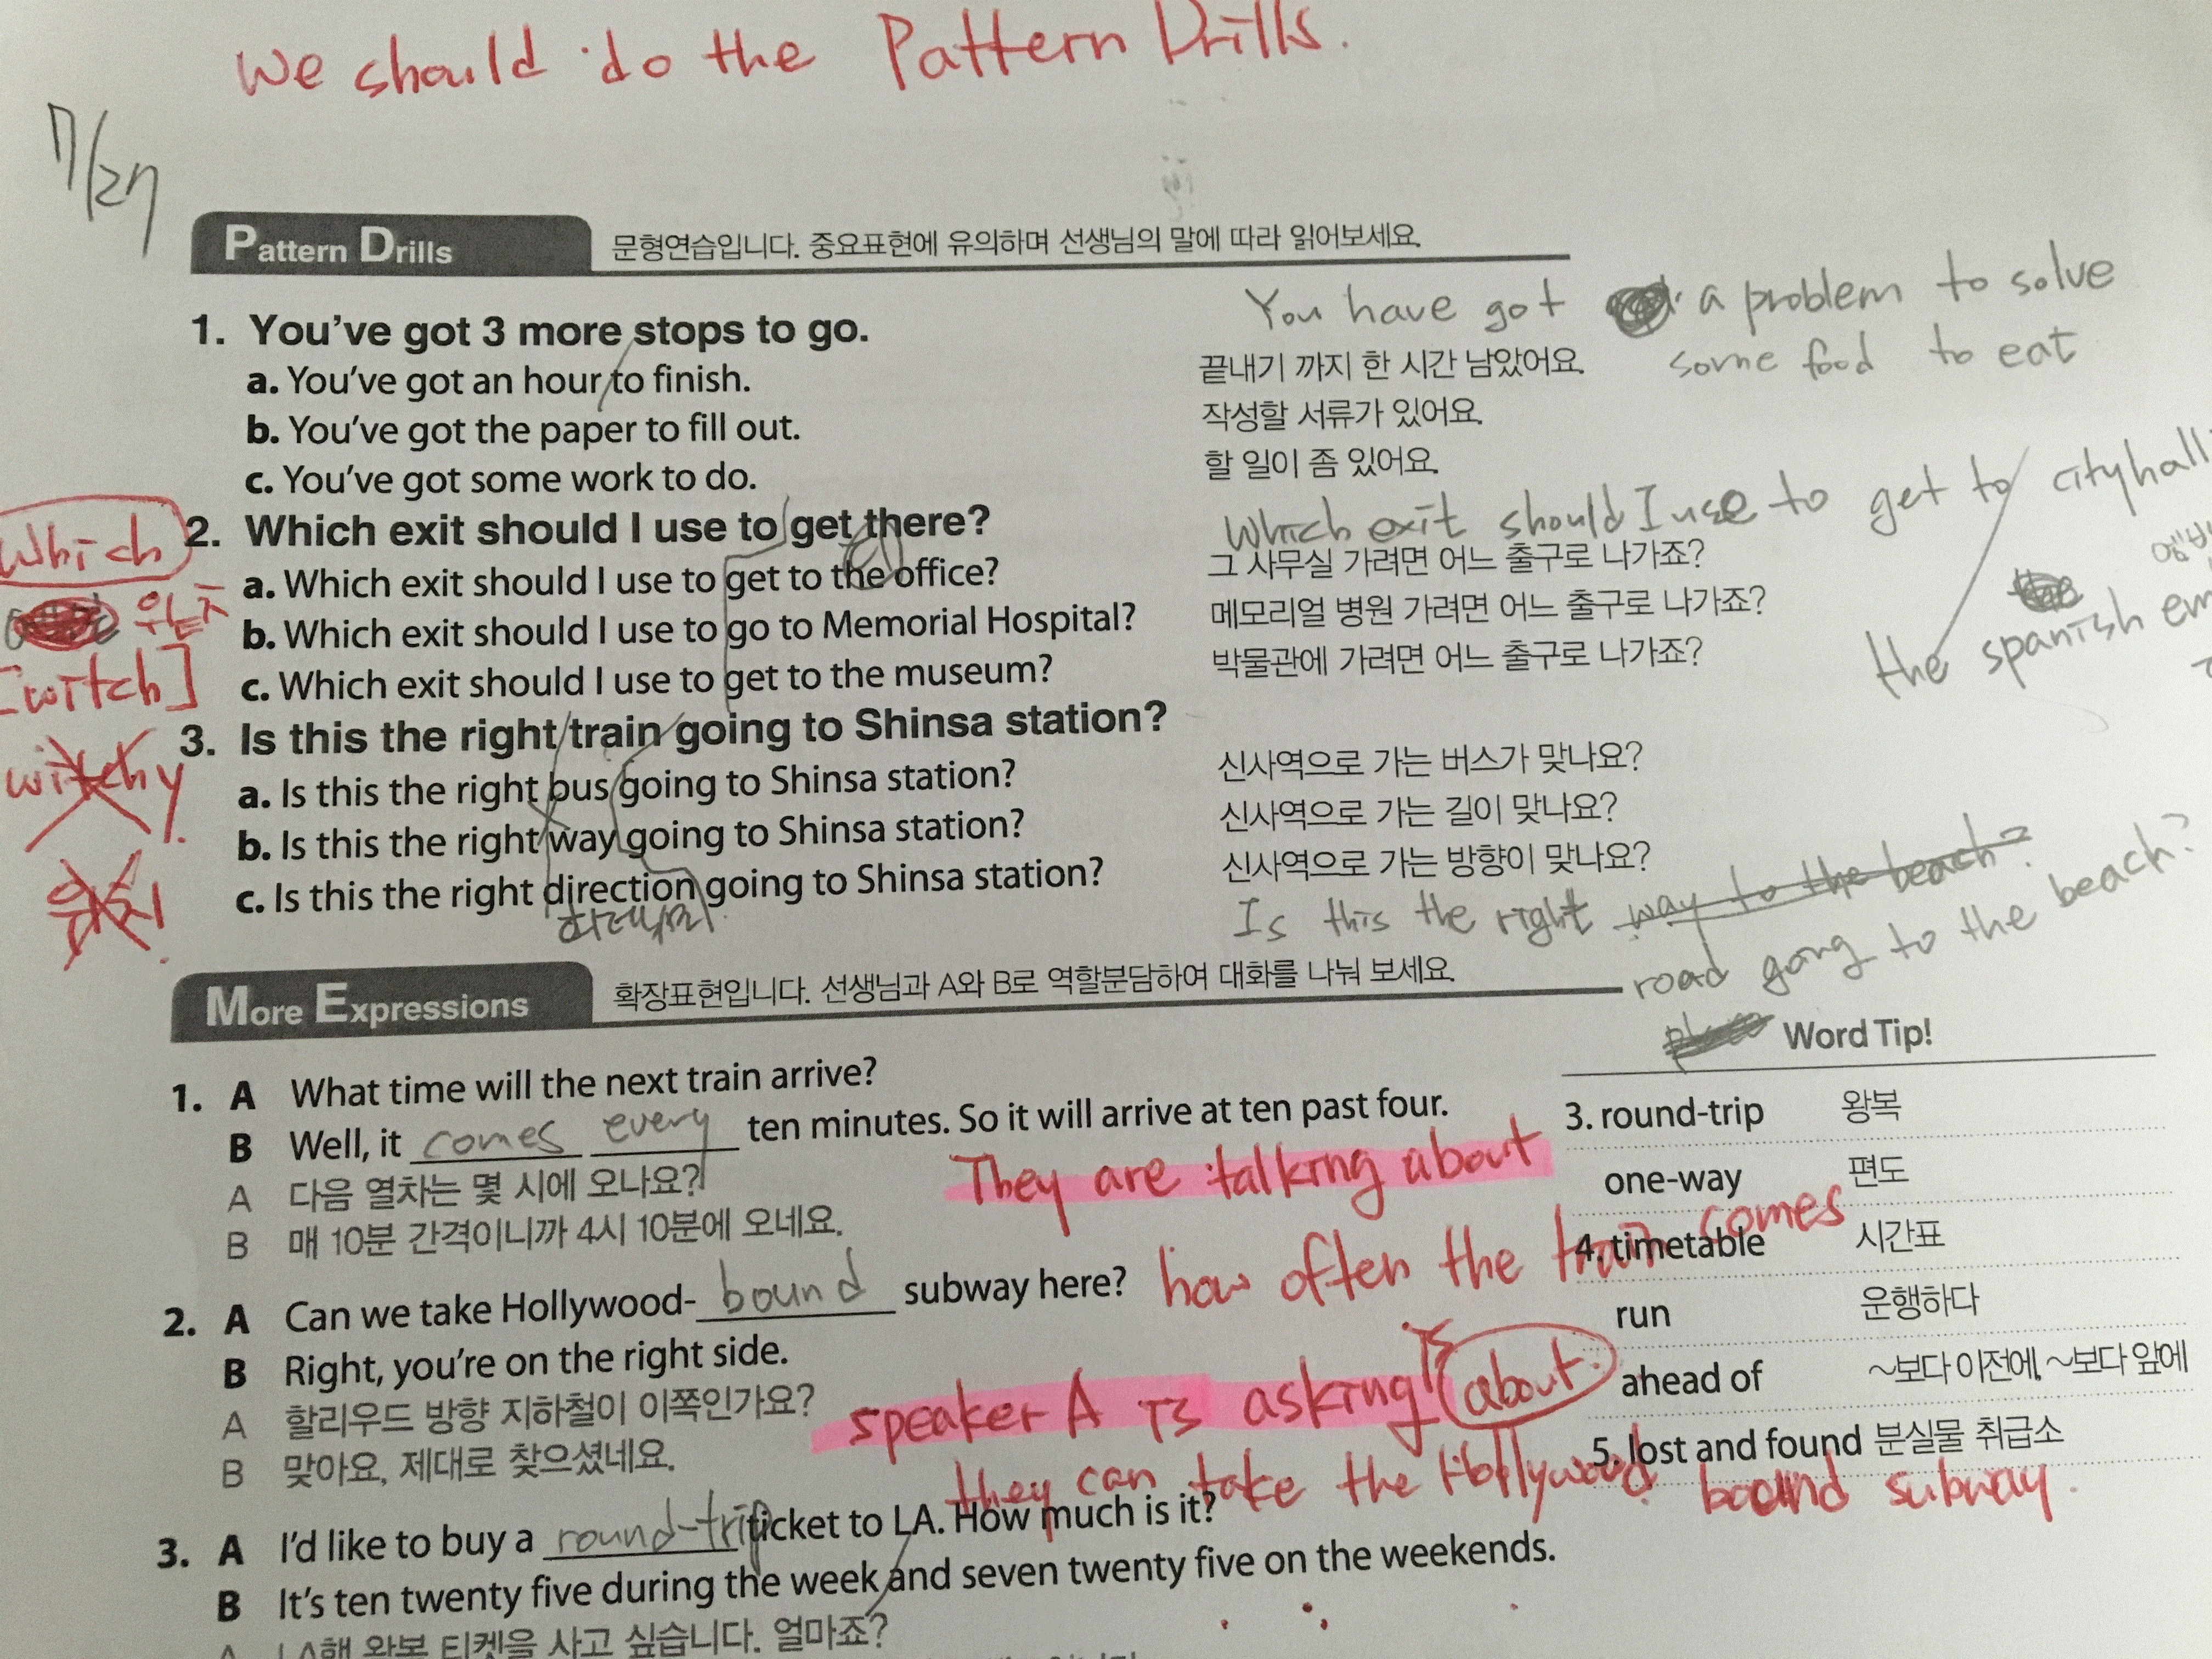 We should do the Pattern Drills.
7/27
Pattern Drills 문형연습입니다. 중요표현에 유의하며 선생님의 말에 따라 읽어보세요.
1. You've got 3 more stops to go.
You have got a problem to solve
a. You've got an hour to finish. 끝내기 까지 한 시간 남았어요.
some food to eat
b. You've got the paper to fill out. 작성할 서류가 있어요.
c. You've got some work to do. 할 일이 좀 있어요.
Which
2. Which exit should I use to get there?
Which exit should I use to get to cityhall
a. Which exit should I use to get to the office? 그 사무실 가려면 어느 출구로 나가죠?
b. Which exit should I use to go to Memorial Hospital? 메모리얼 병원 가려면 어느 출구로 나가죠?
the spanish em
[witch]
c. Which exit should I use to get to the museum? 박물관에 가려면 어느 출구로 나가죠?
3. Is this the right train going to Shinsa station?
witchy
a. Is this the right bus going to Shinsa station? 신사역으로 가는 버스가 맞나요?
b. Is this the right way going to Shinsa station? 신사역으로 가는 길이 맞나요?
c. Is this the right direction going to Shinsa station? 신사역으로 가는 방향이 맞나요?
위치
Is this the right way to the beach?
road going to the beach?
More Expressions 확장표현입니다. 선생님과 A와 B로 역할분담하여 대화를 나눠 보세요.
1. A What time will the next train arrive?
B Well, it comes every ten minutes. So it will arrive at ten past four.
A 다음 열차는 몇 시에 오나요?
B 매 10분 간격이니까 4시 10분에 오네요.
They are talking about
how often the train comes
2. A Can we take Hollywood-bound subway here?
B Right, you're on the right side.
A 할리우드 방향 지하철이 이쪽인가요?
B 맞아요, 제대로 찾으셨네요.
speaker A is asking if about.
they can take the Hollywood bound subway.
3. A I'd like to buy a round-trip ticket to LA. How much is it?
B It's ten twenty five during the week and seven twenty five on the weekends.
A LA행 왕복 티켓을 사고 싶습니다. 얼마죠?
Word Tip!
3. round-trip 왕복
one-way 편도
4. timetable 시간표
run 운행하다
ahead of ~보다 이전에, ~보다 앞에
5. lost and found 분실물 취급소